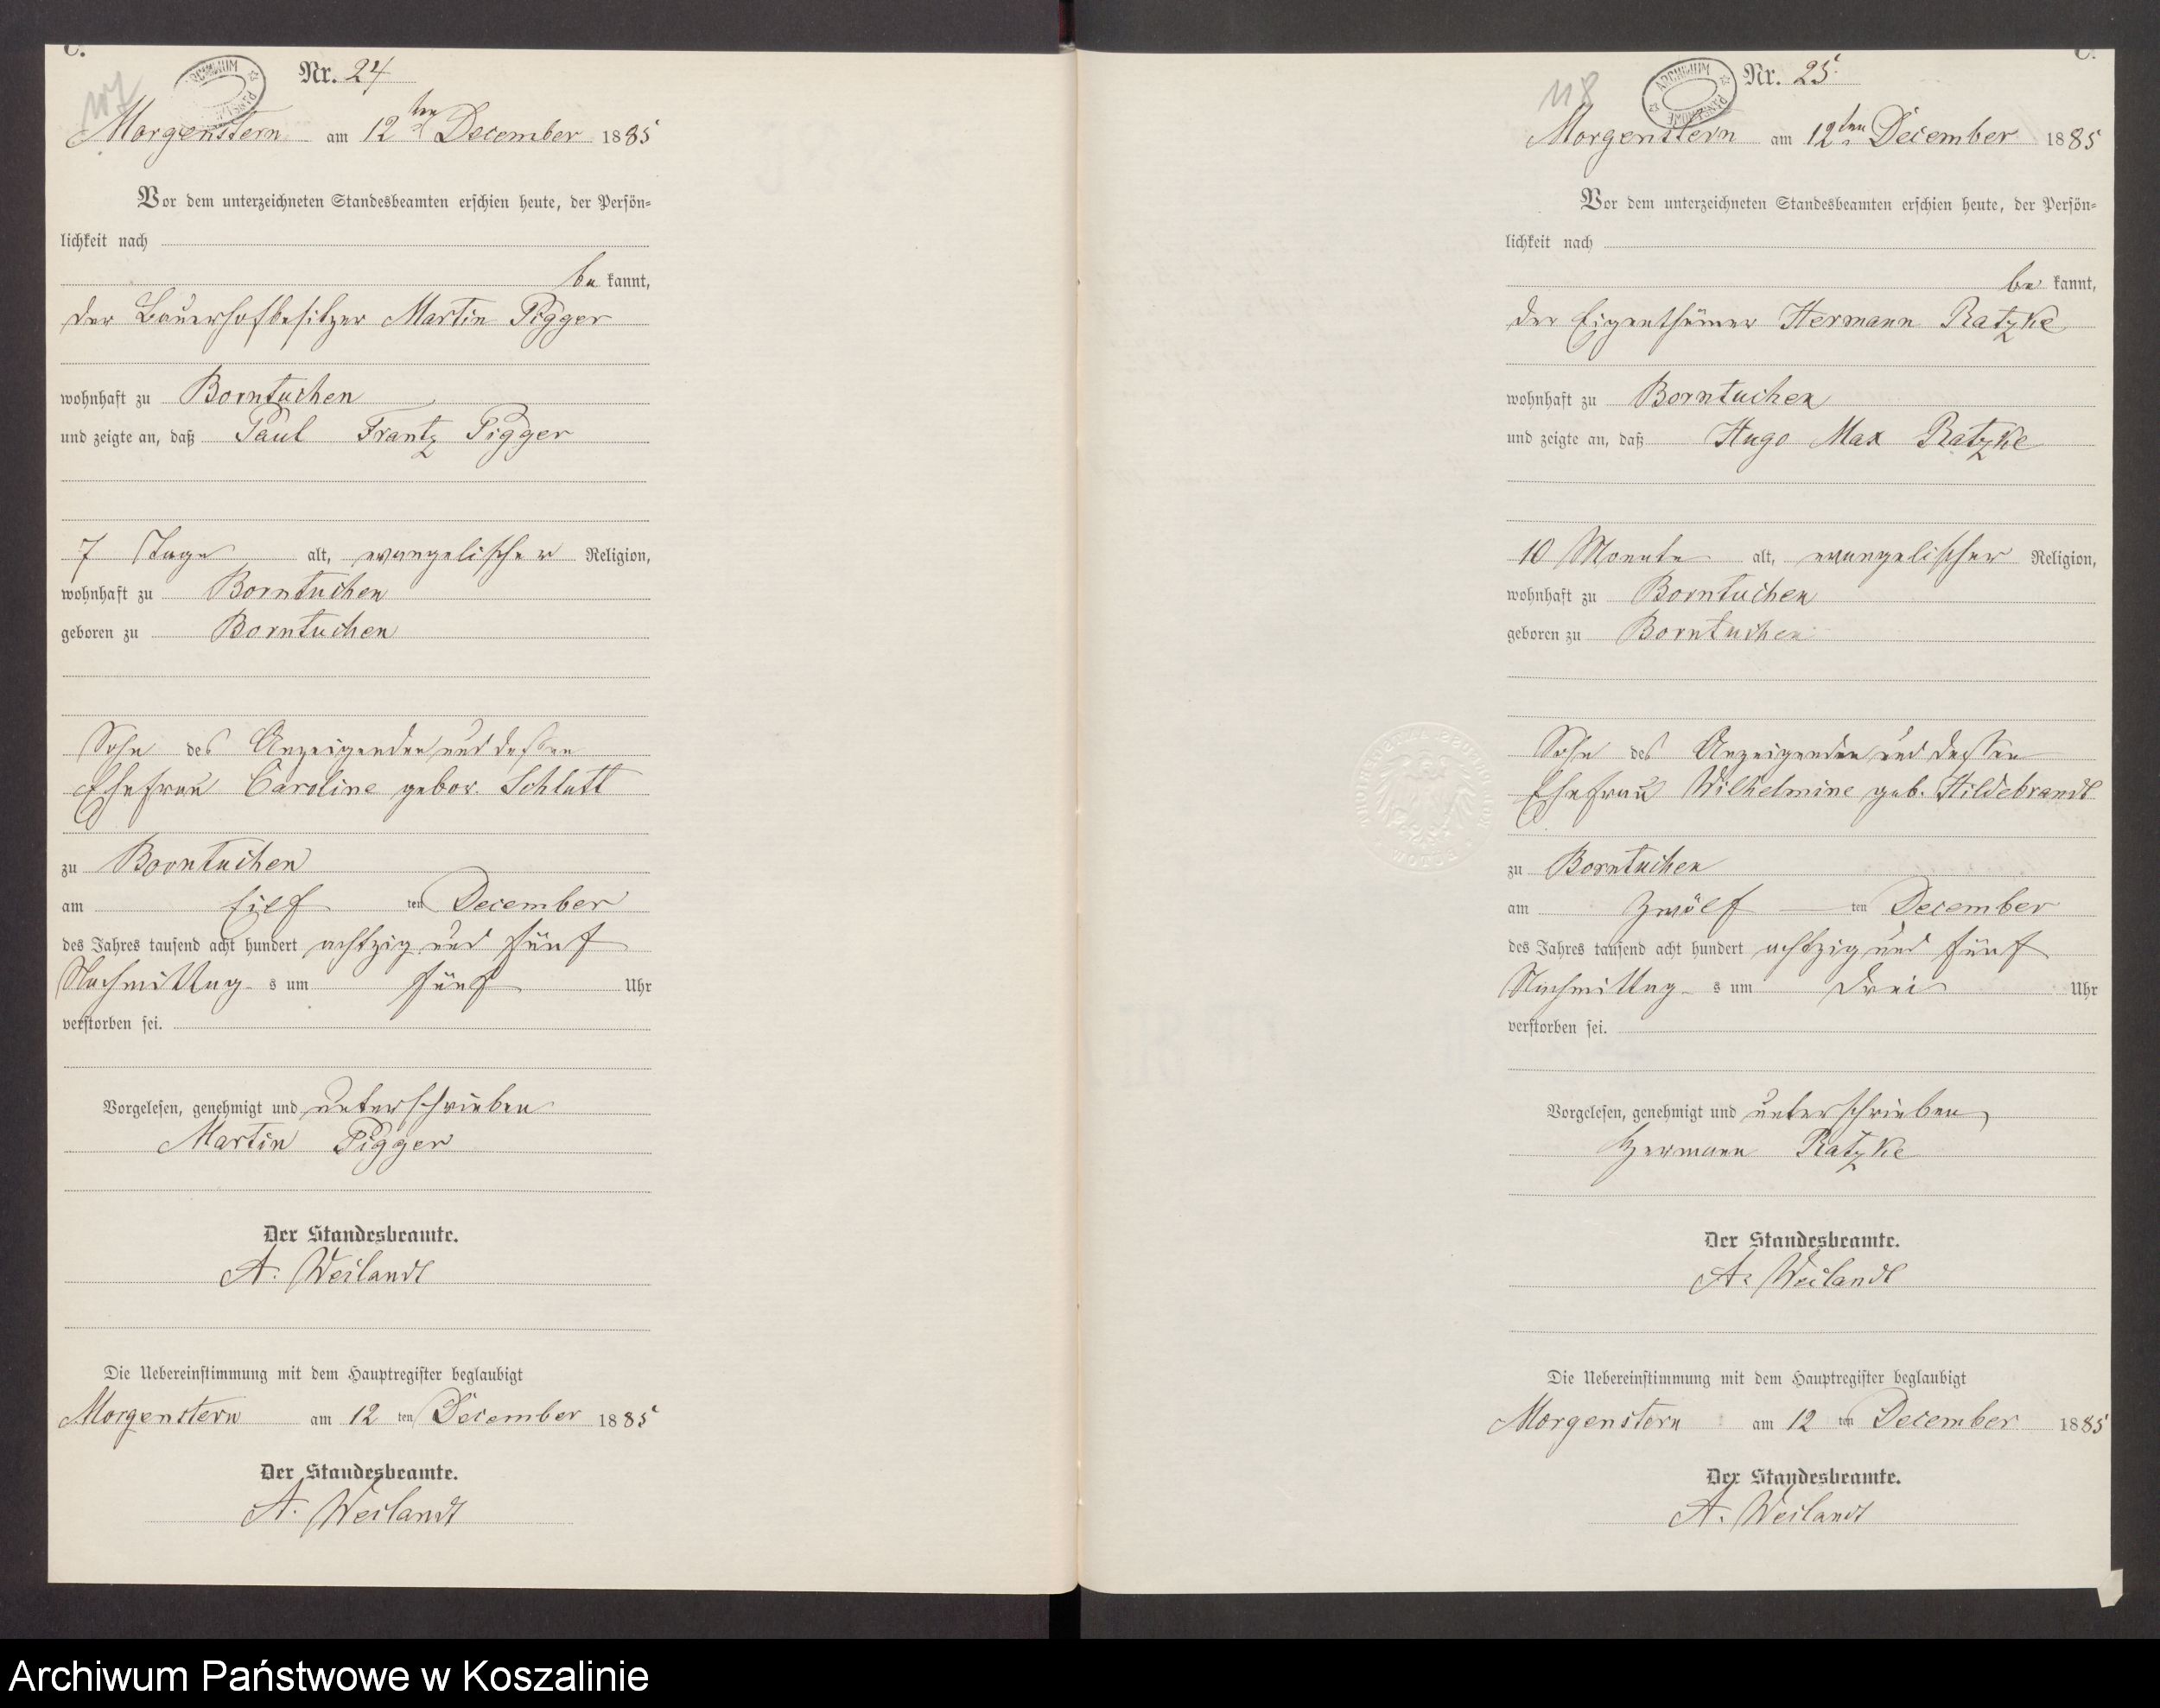 C.
Nr. 24
107
Morgenstern am 12ten December 1885
Vor dem unterzeichneten Standesbeamten erschien heute, der Persön=
lichkeit nach
be kannt,
der Bauerhofbesitzer Martin Pigger
wohnhaft zu Borntuchen
und zeigte an, daß Paul Frantz Pigger
7 Tage alt, evangelischer Religion,
wohnhaft zu Borntuchen
geboren zu Borntuchen
Sohn des Anzeigenden und dessen
Ehefrau Caroline gebor. Schlutt
zu Borntuchen
am Eilf ten December
des Jahres tausend acht hundert achtzig und fünf
Nachmittag s um fünf Uhr
verstorben sei.
Vorgelesen, genehmigt und unterschrieben
Martin Pigger
Der Standesbeamte.
A. Weilandt
Die Uebereinstimmung mit dem Hauptregister beglaubigt
Morgenstern am 12 ten December 1885
Der Standesbeamte.
A. Weilandt
C.
Nr. 25
118
ARCHIWUM PAŃSTWOWE
Morgenstern am 12ten December 1885
Vor dem unterzeichneten Standesbeamten erschien heute, der Persön=
lichkeit nach
be kannt,
der Eigenthümer Hermann Ratzke
wohnhaft zu Borntuchen
und zeigte an, daß Hugo Max Ratzke
10 Monate alt, evangelischer Religion,
wohnhaft zu Borntuchen
geboren zu Borntuchen
Sohn des Anzeigenden und dessen
Ehefrau Wilhelmine geb. Hildebrandt
zu Borntuchen
am Zwölf ten December
des Jahres tausend acht hundert achtzig und fünf
Nachmittag s um drei Uhr
verstorben sei.
Vorgelesen, genehmigt und unterschrieben,
Hermann Ratzke
Der Standesbeamte.
A. Weilandt
Die Uebereinstimmung mit dem Hauptregister beglaubigt
Morgenstern am 12 ten December 1885
Der Standesbeamte.
A. Weilandt
Archiwum Państwowe w Koszalinie